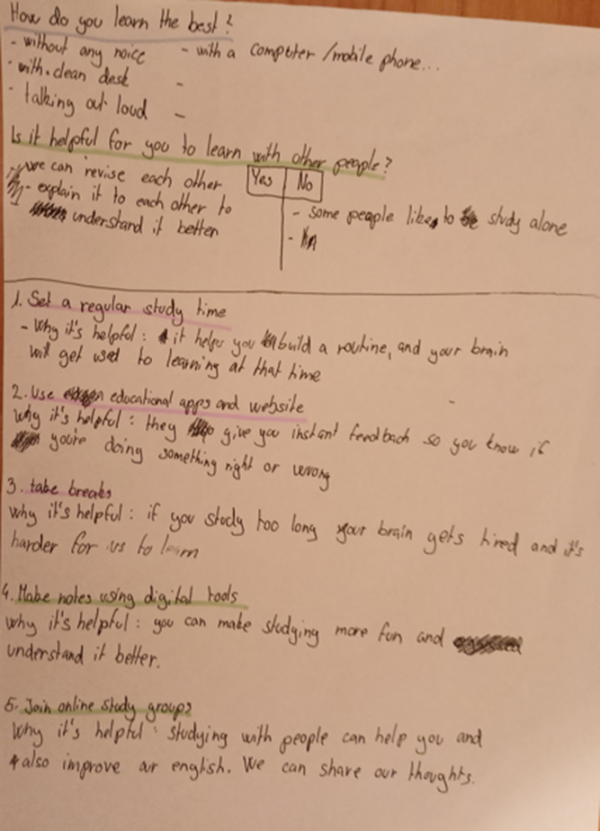 How do you learn the best?
- without any noice - with a computer / mobile phone...
- with clean desk -
- talking out loud -
Is it helpful for you to learn with other people?
Yes No
- we can revise each other
- explain it to each other to
understand it better
- some people like to study alone
-
1. Set a regular study time
- Why it's helpful: it helps you build a routine, and your brain
will get used to learning at that time
2. Use educational apps and website
Why it's helpful: they give you instant feedback so you know if
you're doing something right or wrong
3. take breaks
Why it's helpful: if you study too long your brain gets tired and it's
harder for us to learn
4. Make notes using digital tools
Why it's helpful: you can make studying more fun and
understand it better.
5. Join online study groups
Why it's helpful: studying with people can help you and
also improve our english. We can share our thoughts.